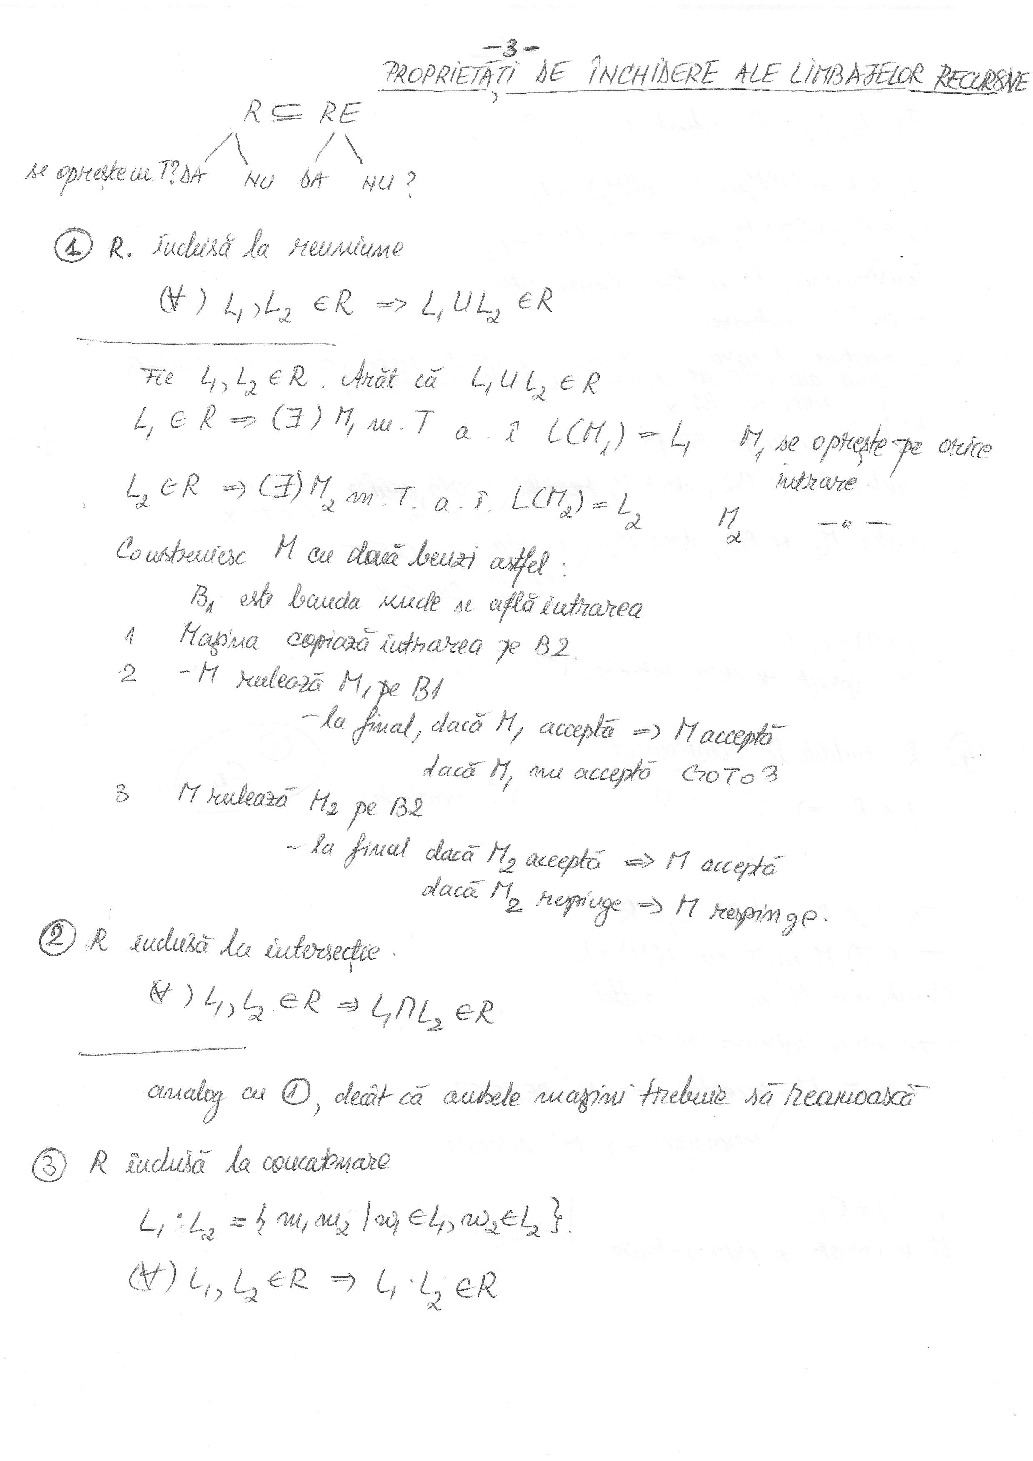 -3-
PROPRIETĂȚI DE ÎNCHIDERE ALE LIMBAJELOR RECURSIVE
R ⊆ RE
se oprește m T? DA NU DA NU ?
① R. închisă la reuniune
(∀) L₁, L₂ ∈ R => L₁ ∪ L₂ ∈ R
Fie L₁, L₂ ∈ R. Arăt că L₁ ∪ L₂ ∈ R
L₁ ∈ R => (∃) M₁ m. T a. î L(M₁) = L₁ M₁ se oprește pe orice
intrare
L₂ ∈ R => (∃) M₂ m. T. a. î. L(M₂) = L₂ M₂ —"—
Construiesc M cu două benzi astfel:
B₁ este banda unde se află intrarea
1 Mașina copiază intrarea pe B2.
2 - M rulează M₁ pe B1
- la final, dacă M₁ acceptă => M acceptă
dacă M₁ nu acceptă GOTO 3
3 M rulează M₂ pe B2
- la final dacă M₂ acceptă => M acceptă
dacă M₂ respinge => M respinge.
② R închisă la intersecție.
∀) L₁, L₂ ∈ R => L₁ ∩ L₂ ∈ R
analog cu ①, decât că ambele mașini trebuie să recunoască
③ R închisă la concatenare
L₁ · L₂ = { w₁ w₂ | w₁ ∈ L₁, w₂ ∈ L₂ }.
(∀) L₁, L₂ ∈ R => L₁ · L₂ ∈ R